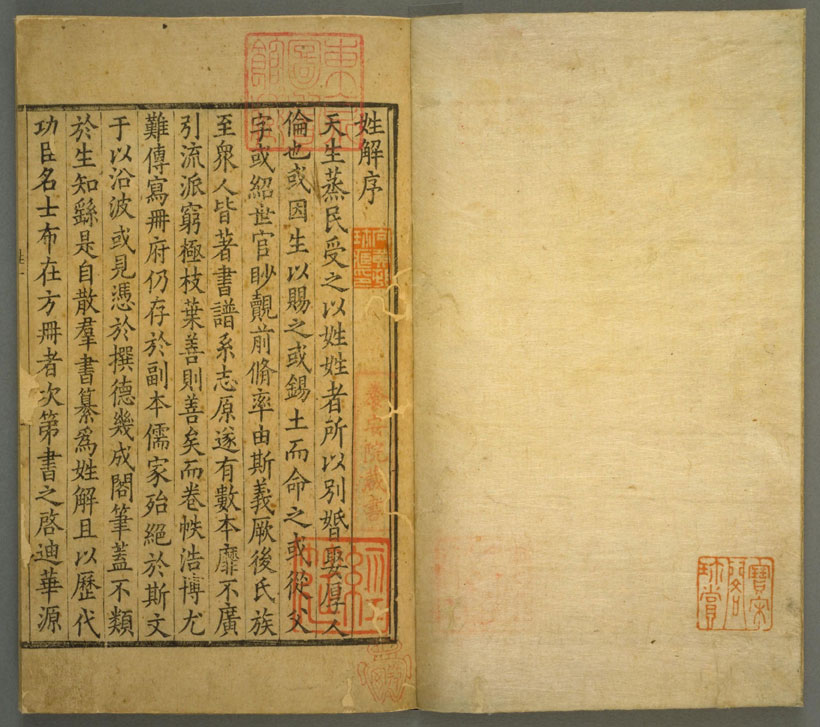 寶宋閣珍賞
姓解序
天生蒸民受之以姓姓者所以別婚娶厚人
倫也或因生以賜之或錫土而命之或從父
字或紹世官眇覿前脩率由斯義厥後氏族
至衆人皆著書譜系志原遂有數本靡不廣
引流派窮極枝葉善則善矣而卷帙浩博尤
難傳寫冊府仍存於副本儒家殆絕於斯文
于以沿波或見憑於撰德幾成閣筆蓋不類
於生知繇是自散羣書纂爲姓解且以歷代
功臣名士布在方冊者次第書之啓迪華源
養安院藏書